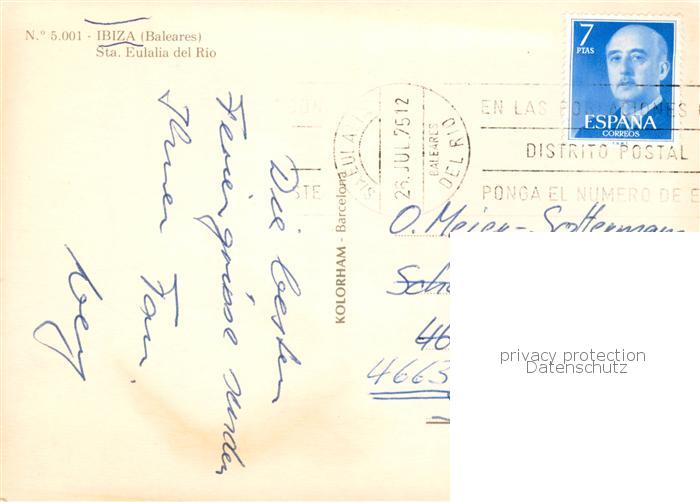 N.º 5.001 - IBIZA (Baleares)
Sta. Eulalia del Rio
7
PTAS
ESPAÑA
CORREOS
STA EULALIA
26. JUL. 75 12
BALEARES
DEL RIO
EN LAS POBLACIONES
DISTRITO POSTAL
PONGA EL NUMERO DE E
KOLORHAM - Barcelona
Die besten
Feriengrüsse senden
Ihnen Fam.
O. Meier-
Sch
46
4663
privacy protection
Datenschutz